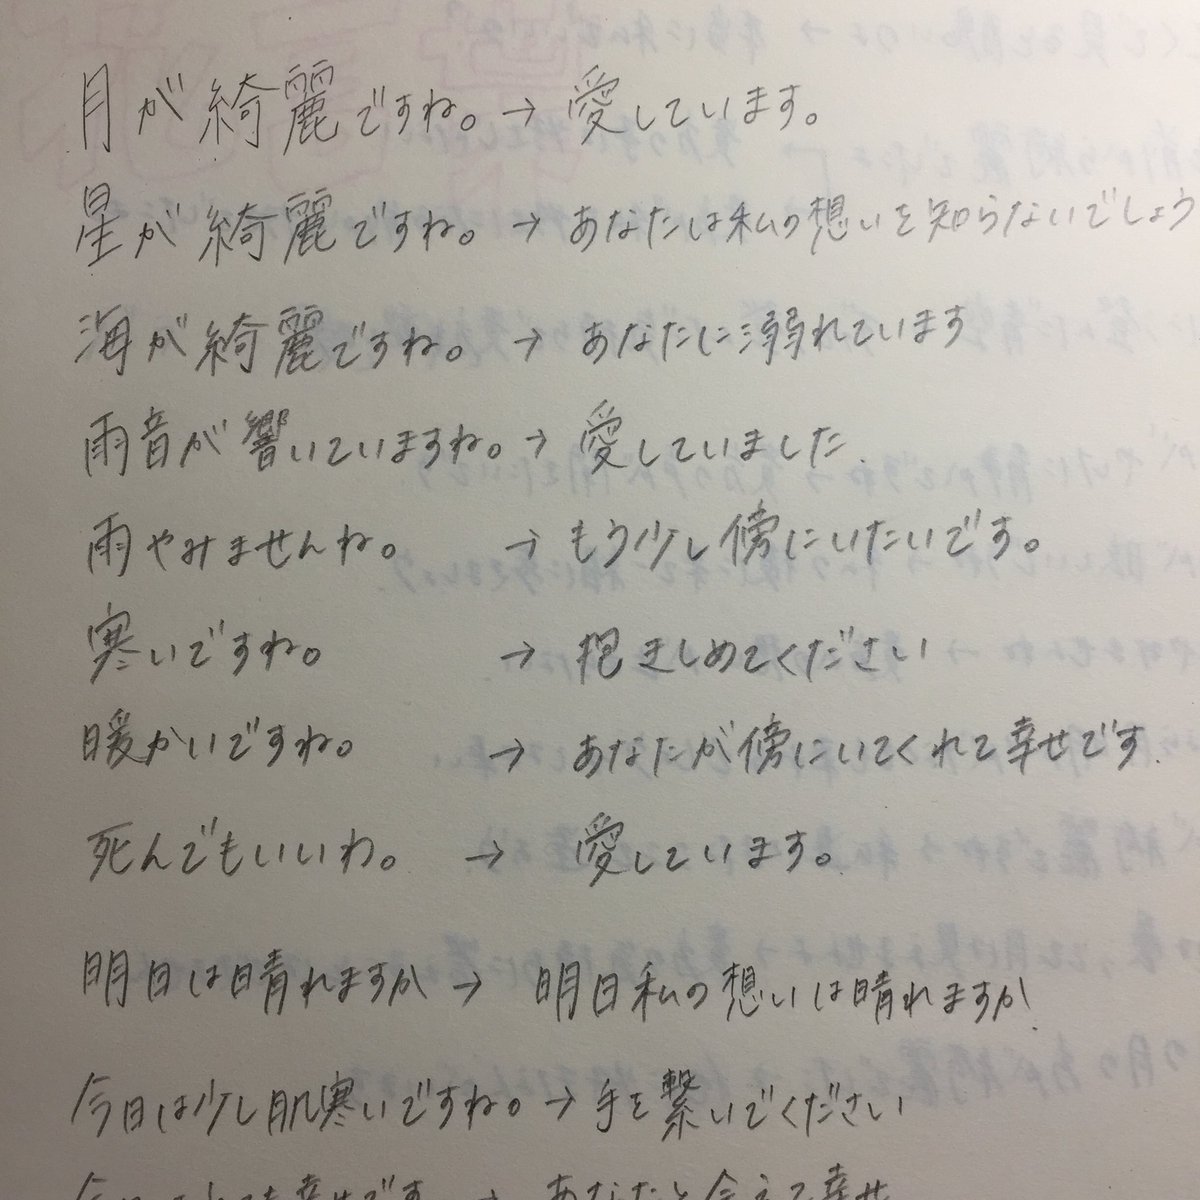 月が綺麗ですね。→ 愛しています。
星が綺麗ですね。→ あなたは私の想いを知らないでしょう
海が綺麗ですね。→ あなたに溺れています
雨音が響いていますね。→ 愛していました.
雨やみませんね。→ もう少し傍にいたいです。
寒いですね。→ 抱きしめてください
暖かいですね。→ あなたが傍にいてくれて幸せです.
死んでもいいわ。→ 愛しています。
明日は晴れますか → 明日私の想いは晴れますか.
今日は少し肌寒いですね。→ 手を繋いでください